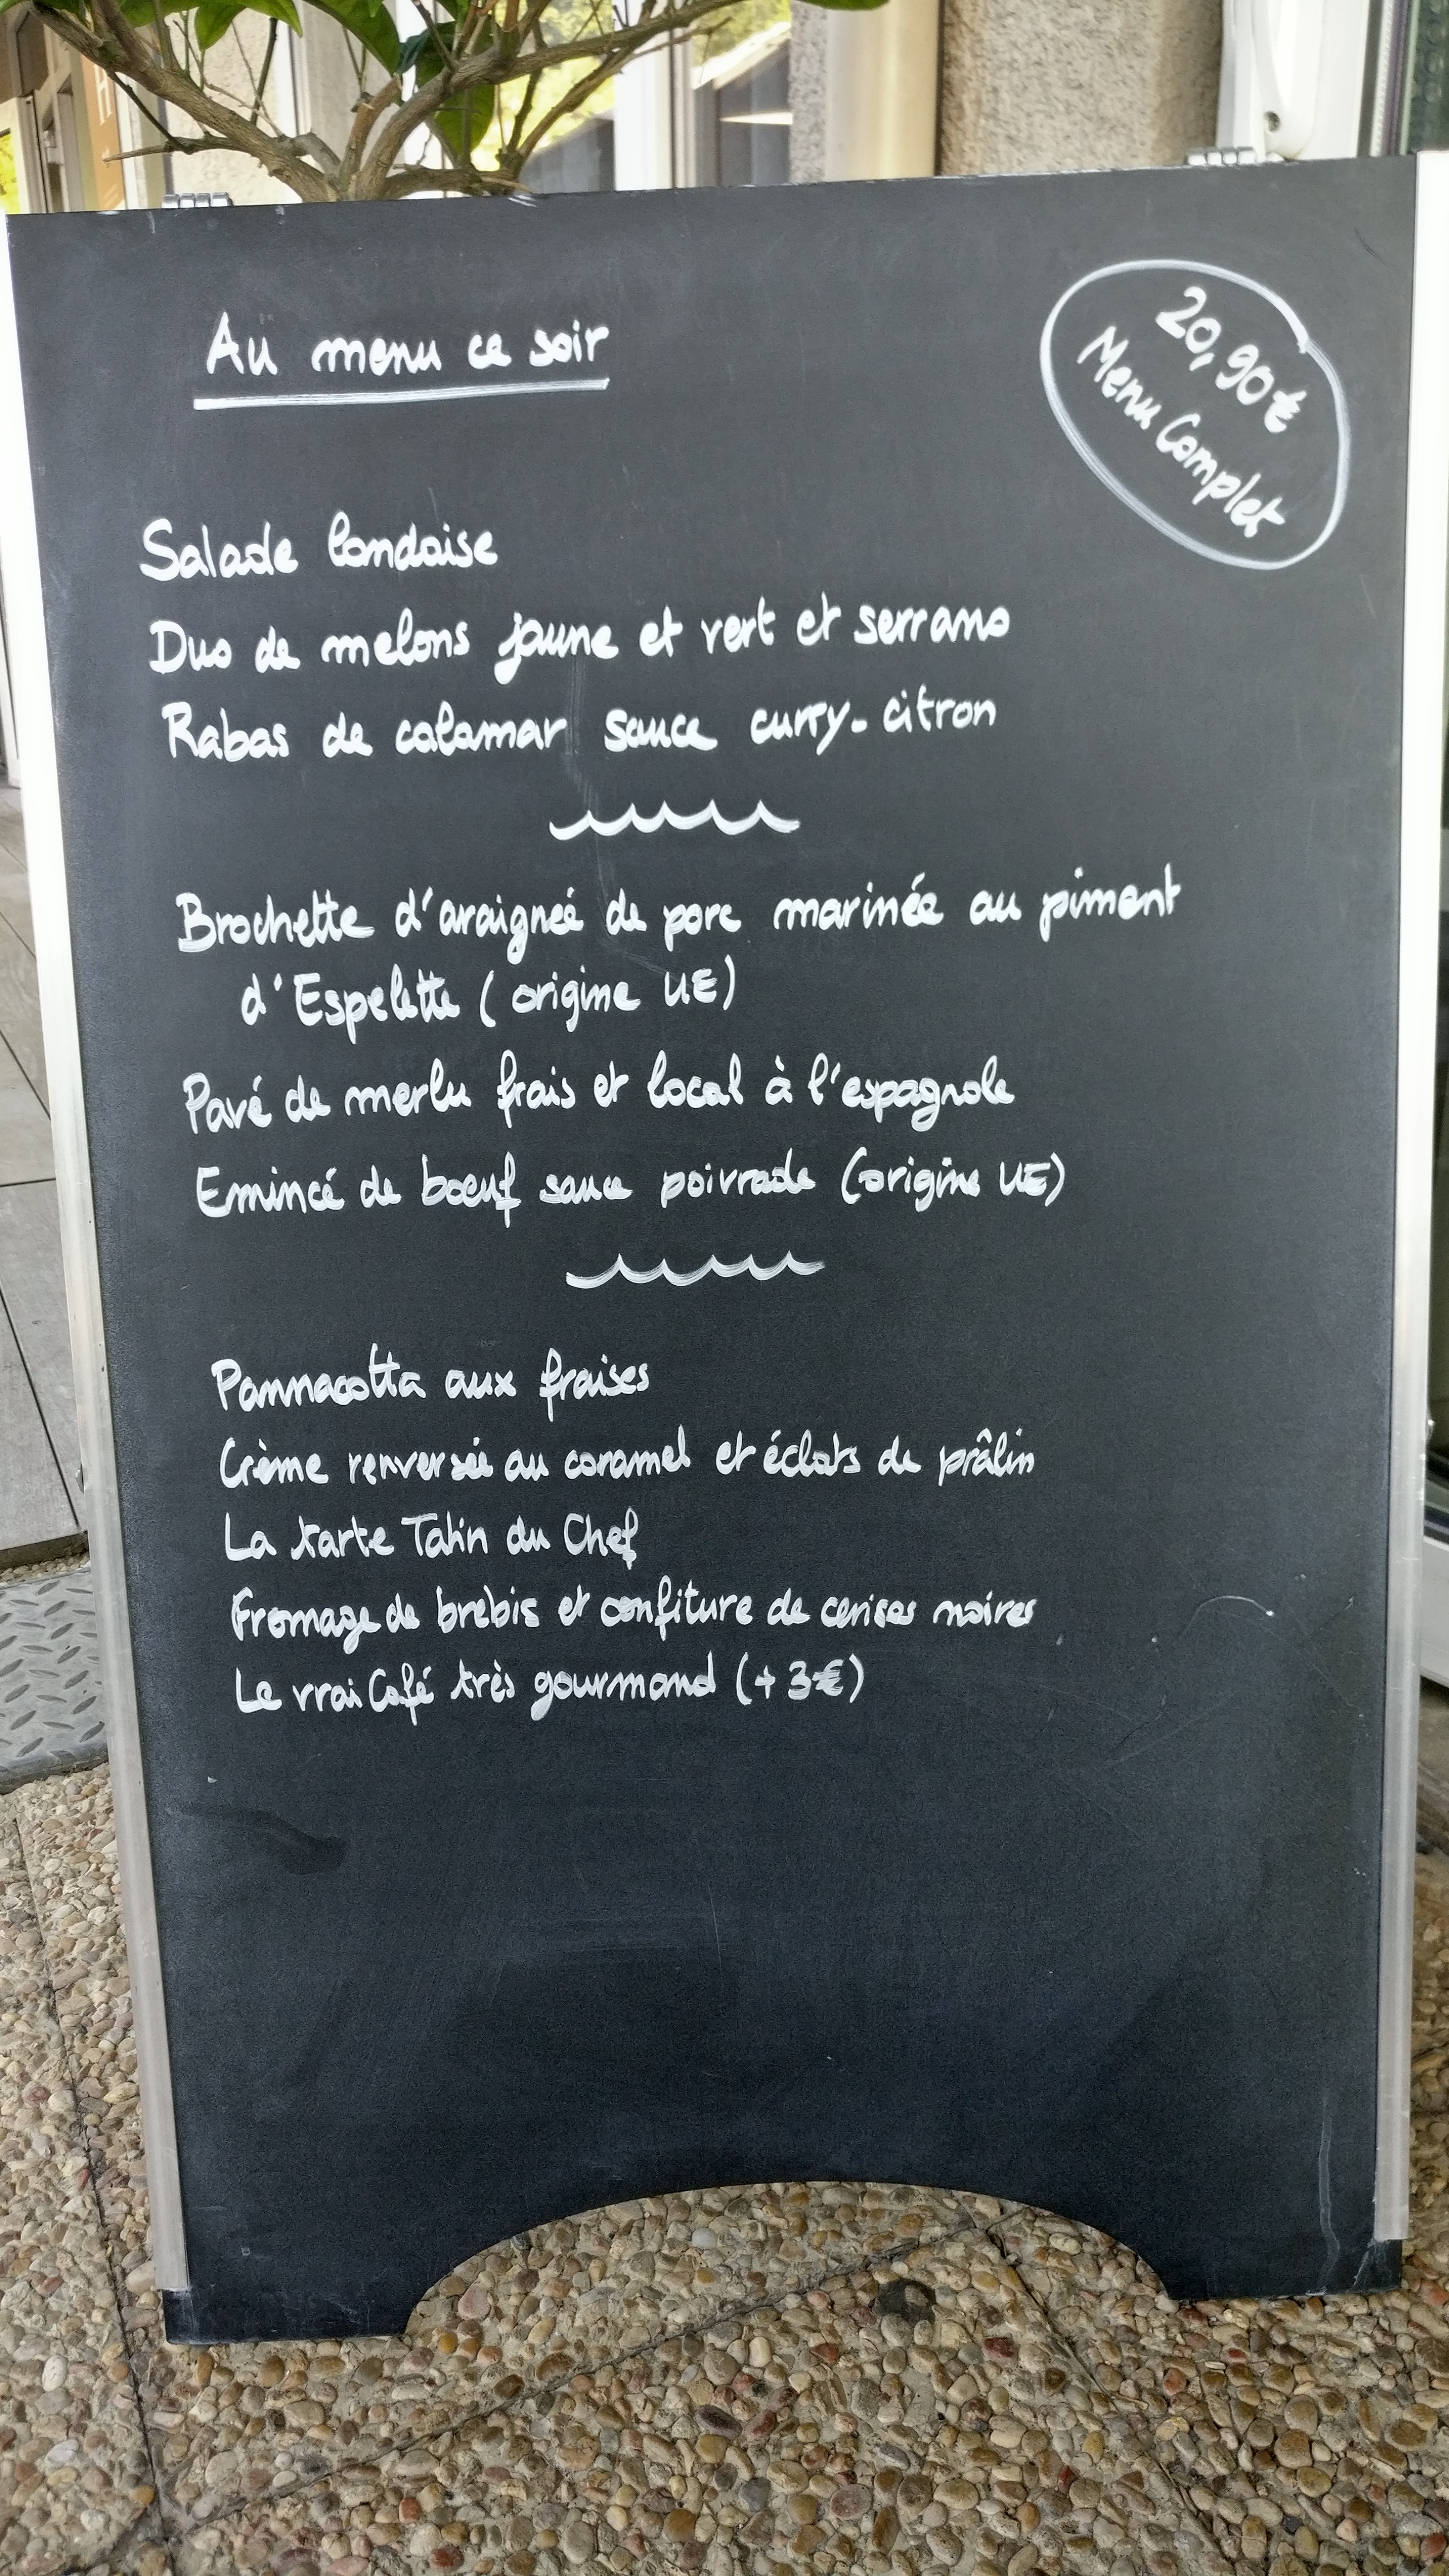 Au menu ce soir
20,90€
Menu Complet
Salade landaise
Duo de melons jaune et vert et serrano
Rabas de calamar sauce curry-citron
Brochette d'araigneé de porc marinée au piment
d'Espelette (origine UE)
Pavé de merlu frais et local à l'espagnole
Emincé de boeuf sauce poivrade (origine UE)
Pannacotta aux fraises
Crème renversée au caramel et éclats de prâlin
La tarte Tatin du Chef
Fromage de brebis et confiture de cerises noires
Le vrai Café très gourmand (+3€)